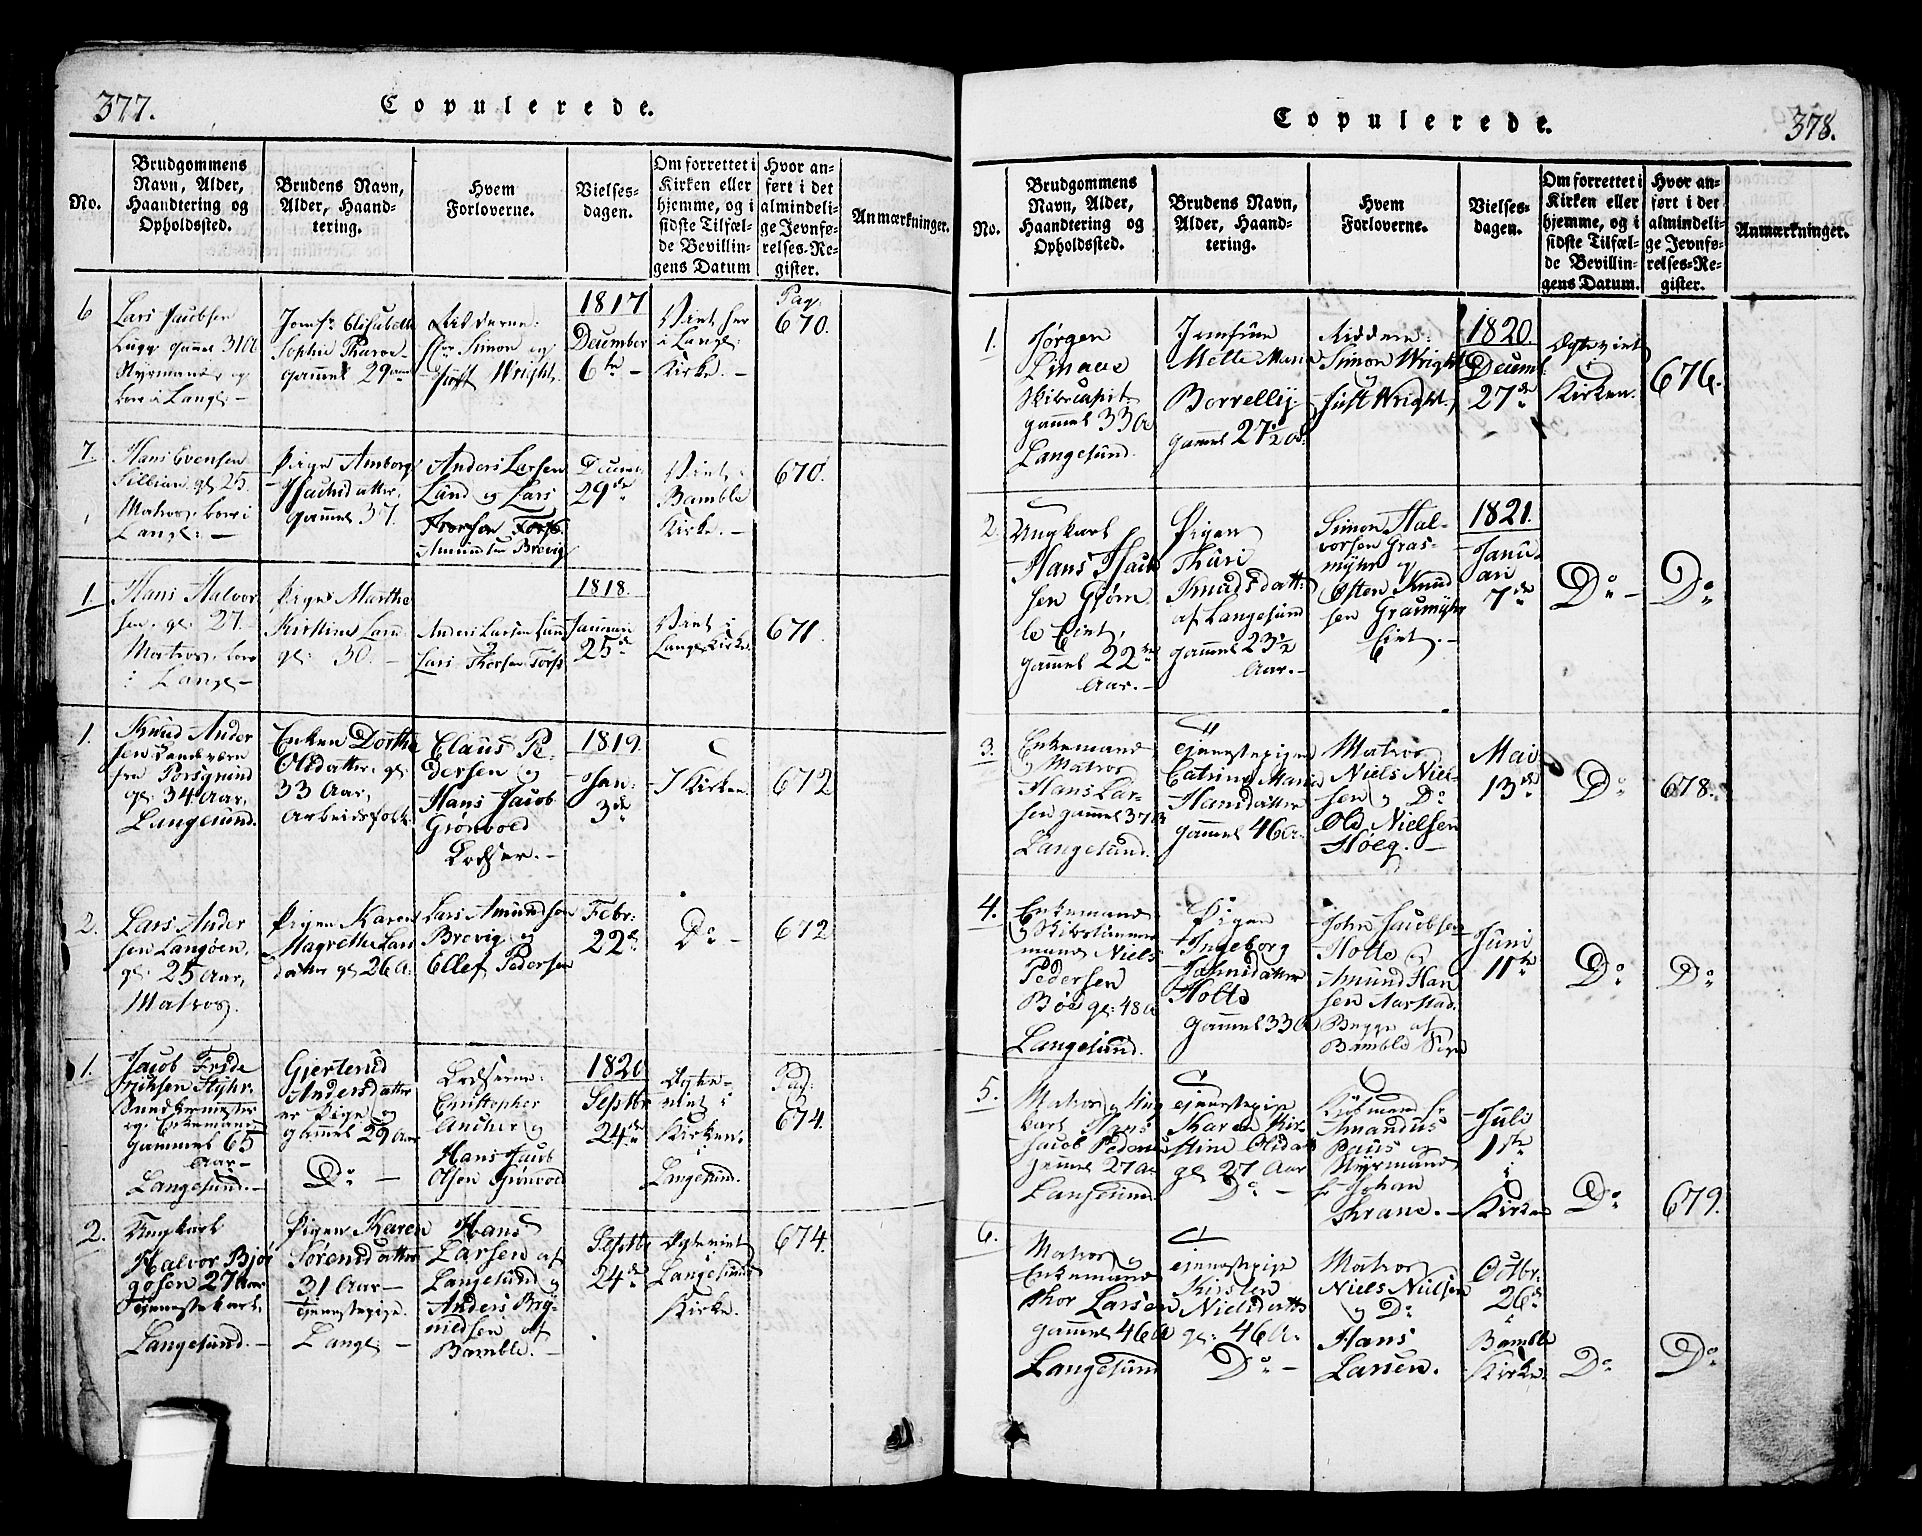 377.
Copulerede.
No.
Brudgommens
Navn, Alder,
Haandtering og
Opholdssted.
Brudens Navn,
Alder, Haand-
tering.
Hvem
Forloverne.
Vielses-
dagen.
Om forrettet i
Kirken eller
hjemme, og i
sidste Tilfæl-
de Bevillin-
gens Datum
Hvor an-
ført i det
almindeli-
ge Jevnfø-
relses-Re-
gister.
Anmærkninger.
6
Lars Jacobsen
gammel
Styrmand og
boer i Lang: –
Jomfr Elisabeth
Sophie
gammel 29
Fadderne:
Simon og
Just Wright.
1817
December
6te –
Viet her
i Lang:
Kirke. –
Pag:
670.
7.
Hans Evensen
gl. 25.
Matros, boer i
Lang: –
Pigen Amborg
gammel 37.
Anders Larsen
Lund og Lars
Amundsen Brevig
Decem:
29de
Viet i
Bamble
Kirke. –
670.
1.
Hans Halvor
sen. gl: 27.
Matros, boer
i Lang: –
Pigen Marthe
Kirstine
gl: 30. –
Anders Larsen Lund
og
Lars Thorsen
1818.
Januari
25de
Viet i
Lang: Kirke.
671.
1.
Knud Ander
sen
fra Porsgrund
gl: 34 Aar,
Langesund.
Enken Dorthe
Olsdatter gl:
33 Aar,
Arbeidsfolk.
Claus Pe-
dersen og
Hans Jacob
Grønvold
Lodser. –
1819.
Jan:
3de
I Kirken.
672
2.
Lars Ander
sen Langøen.
gl: 25 Aar,
Matros.
Pigen Karen
Magrethe Lars
datter gl 26 A:
Lars Amundsen
Brevig og
Ellef Pedersen
Febr:
22de
Do –
672
1.
Jacob Fride
riksen Styhr.
og Enkemand
gammel 65
Aar –
Langesund. –
Gjertrud
Andersdatter
er Pige og
gammel 29 Aar
Do –
Lodserne:
Christopher
Ancher og
Hans Jacob
Olsen Grønvold
1820
Septbr
24de
Ægte-
viet i
Kirken:
Langesund.
Pag:
674.
2.
Ungkarl
Halvor Bjør
gosen 27 Aar
Tjenestekarl.
Langesund. –
Pigen Karen
Sørensdatter
31 Aar –
Tjenestepige.
Lang:
Hans
Larsen af
Langesund og
Anders
af
Bamble. –
Septbr
24de
Ægteviet
Langesund
Kirke.
674.
Copulerede.
378.
No.
Brudgommens
Navn, Alder,
Haandtering og
Opholdssted.
Brudens Navn,
Alder, Haand-
tering.
Hvem
Forloverne.
Vielses-
dagen.
Om forrettet i
Kirken eller
hjemme, og i
sidste Tilfæl-
de Bevillin-
gens Datum.
Hvor an-
ført i det
almindeli-
ge Jevnfø-
relses-Re-
gister.
Anmærkninger.
1.
Jørgen
Linaae
Skibscapit
gammel 33 A
Langesund.
Jomfrue
Mette Maria
Borrelly.
gammel 27½ A:
Simon Wright
Just Wright.
1820.
Decem:
27de
Ægteviet
i
Kirken.
676.
2.
Ungkarl
Hans Jacob
sen Grøm
le Eiet,
gammel 22
Aar. –
Pigen
Thuri
Knudsdatt:
af Langesund
gammel 23½
Aar. –
Simon Hal-
vorsen Gras-
myhr og
Osten Knud
sen Grasmyhr
Eiet. –
1821.
Janu
ari
7de
Do –
Do
3.
Enkemand
og Matros
Hans Lar-
sen gammel 37
Langesund.
Tjenestepigen
Catrina Maria
Hansdatter
gammel 46 A:
Matros
Niels Niel-
sen og Do
Old Nielsen
Høeg. –
Mai
13de
Do
678.
4.
Enkemand
og Skibstimmer
mand Niels
Pedersen
Böe gl: 48 A
Langesund.
Pigen
Ingeborg
Johnsdatter
Holte
gammel 33 A
John Jacobsen
Holte og
Amund Han
sen Aarstad.
Begge af
Bamble Sogn
Juni
11te
Do
Do
5.
Matros og Ung
karl Hans
Jacob Pedersen
gammel 27 A
Langesund.
Tjenestepige
Karen Kir-
stine Olsdatt
gl 27 Aar
Do –
Kjøbmand Hr
Amandus
Paus og
Styrmand
Hr Johan
Krane. –
Juli
1ste
i
Kirken
Do
679.
6.
Matros og
Enkemand
Thor Larsen
gammel 46 A
Langesund
Tjenestepige
Kirsten
Nielsdatter
gl: 46 A:
Do –
Matros
Niels Nielsen
og Do
Hans
Larsen.
Octbr.
26de
Bamble
Kirke.
Do
Do